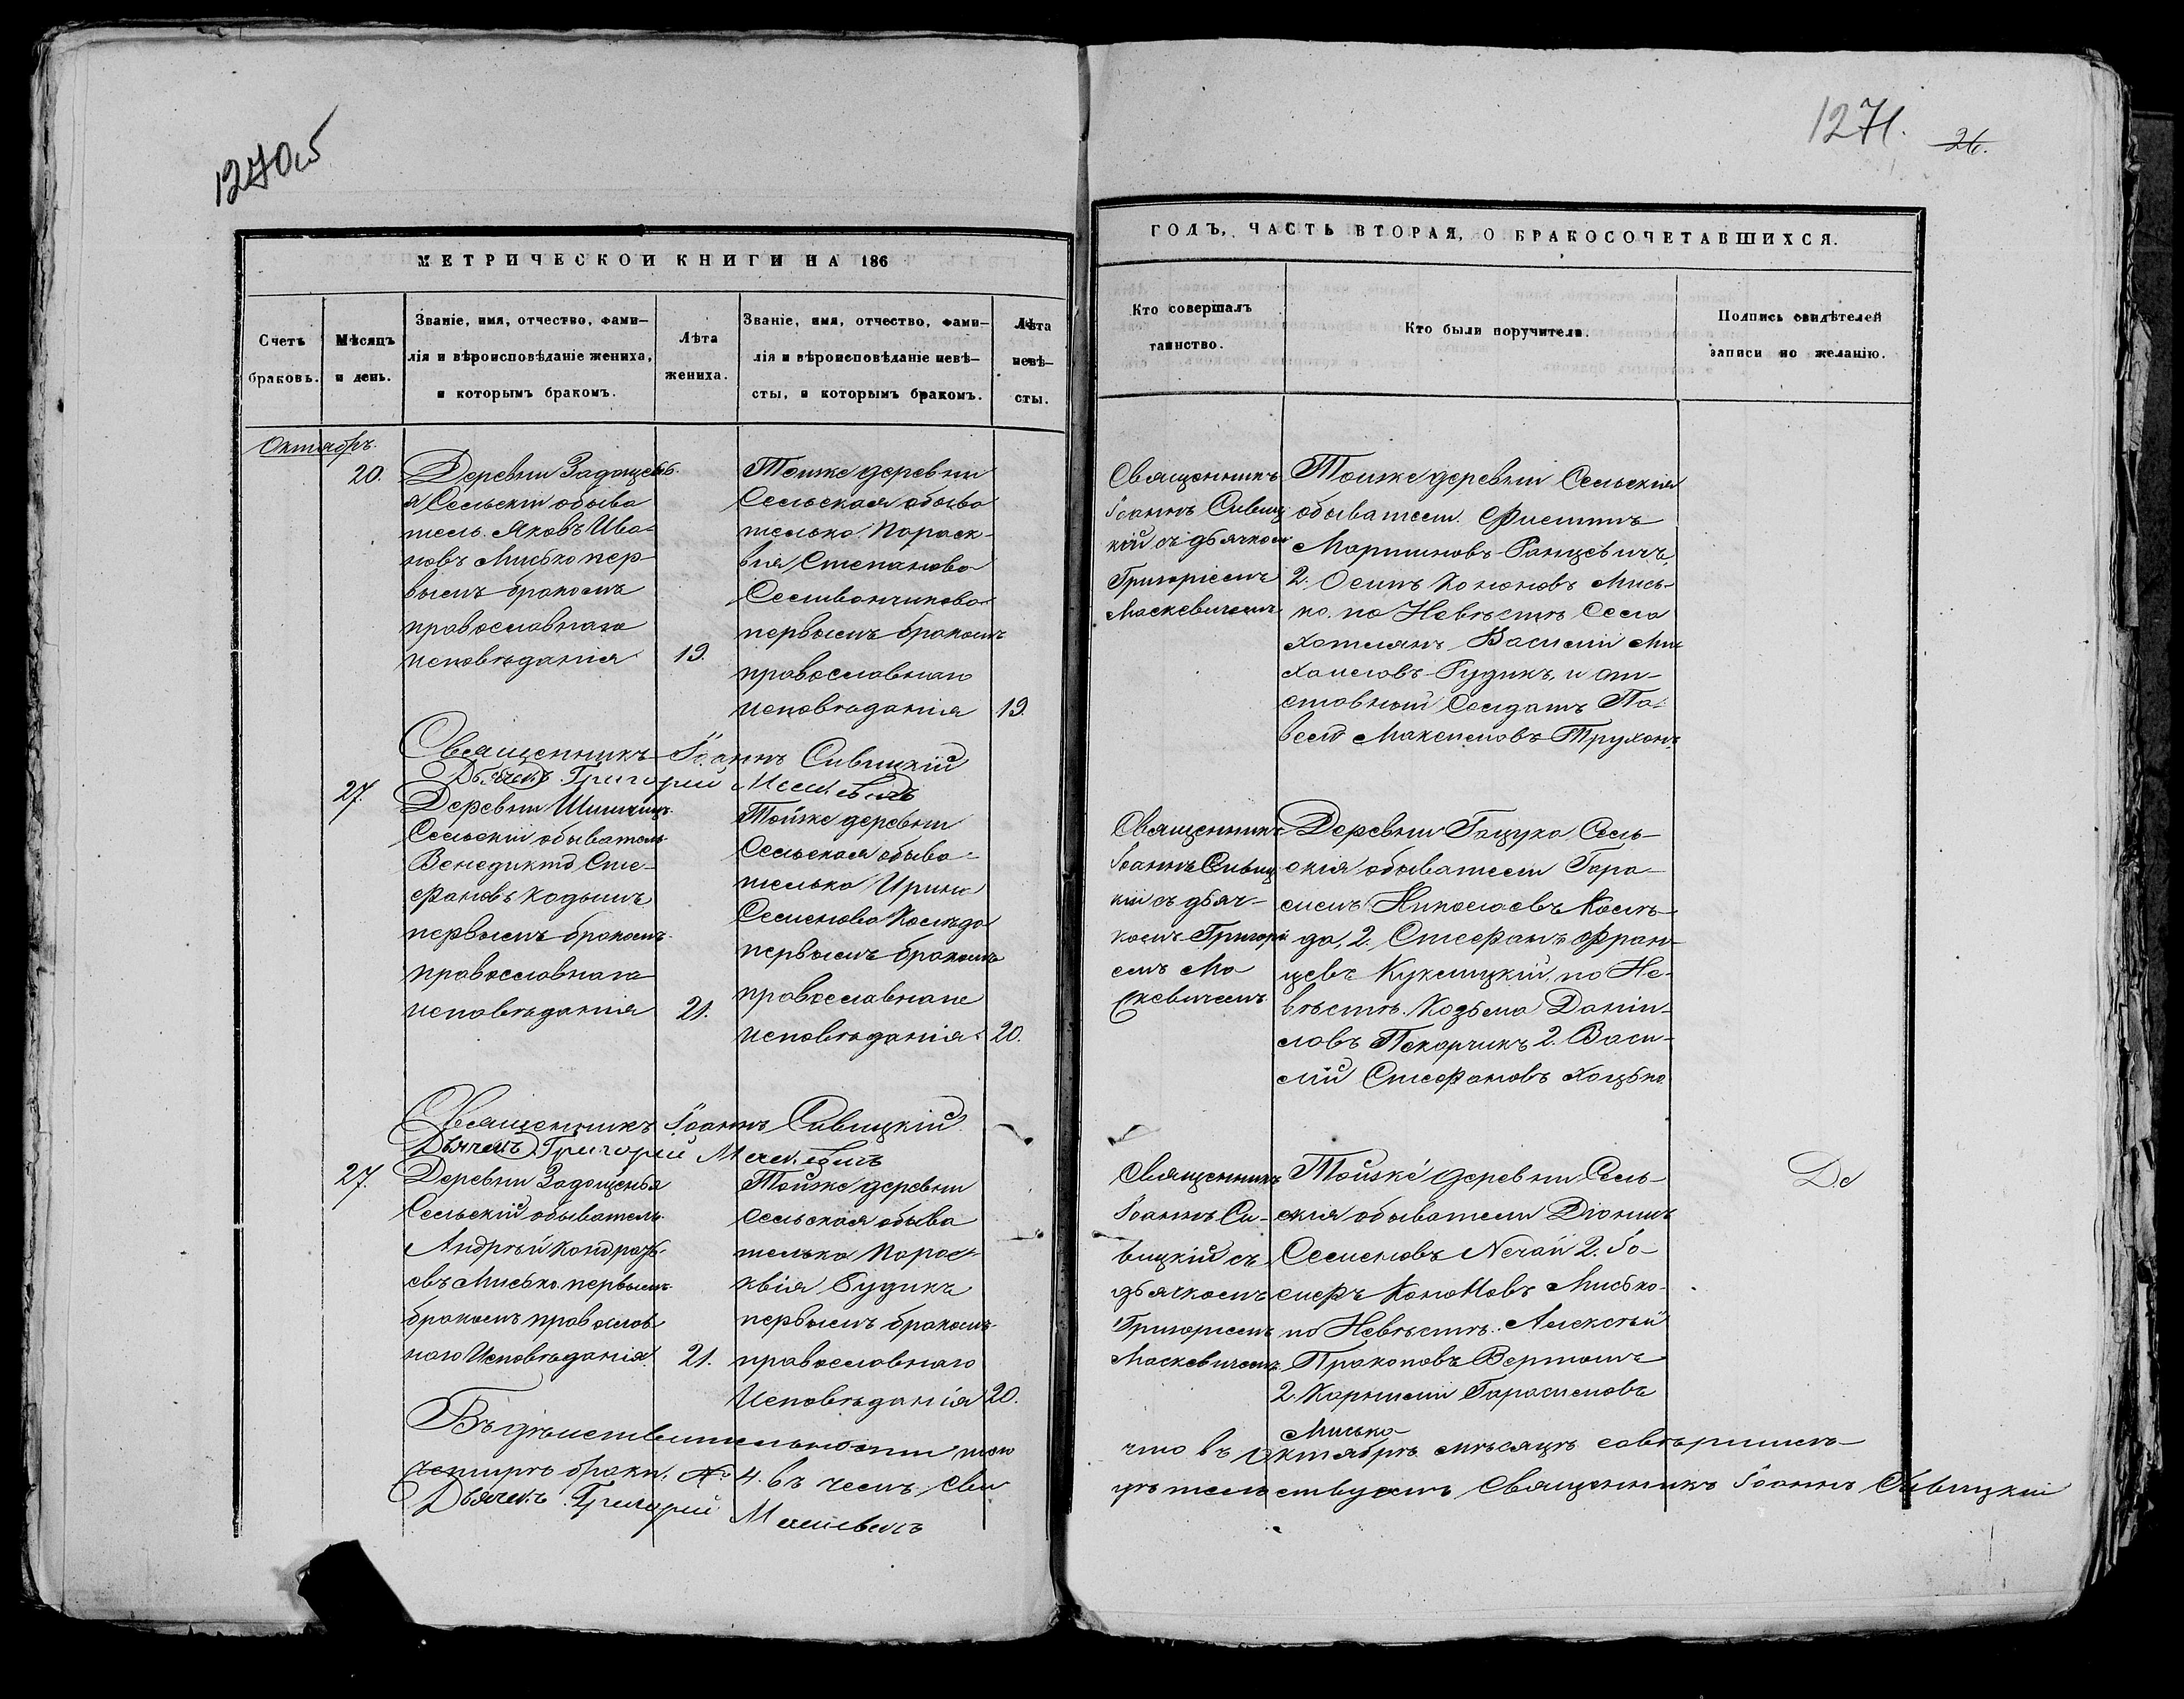 1270об
1271.
26.
МЕТРИЧЕСКОЙ КНИГИ НА 186
Счетъ
браковъ.
Мѣсяцъ
и день.
Званіе, имя, отчество, фами-
лія и вѣроисповѣданіе жениха,
и которымъ бракомъ.
Лѣта
жениха.
Званіе, имя, отчество, фами-
лія и вѣроисповѣданіе невѣ-
сты, и которымъ бракомъ.
Лѣта
невѣ-
сты.
Октябрь.
20.
Деревни Задощень
я Сельскій обыва
тель Яковъ Ива-
новъ Мисько пер-
вымъ бракомъ
православнаго
исповѣданія
19.
Тойже деревни
Сельская обыва
телька Параск-
вія Степанова
Селивончикова
первымъ бракомъ
православнаго
исповѣданія
19.
Священникъ Іоаннъ Сивицкій
Дьячекъ Григорій Маскевичъ
27.
Деревни
Сельскій обыватель
Венедиктъ Сте-
фановъ Кадышъ
первымъ бракомъ
православнаго
исповѣданія
21.
Тойже деревни
Сельская обыва-
телька Ирина
Семенова Колѣда
первымъ бракомъ
православнаго
исповѣданія
20.
Священникъ Іоаннъ Сивицкій
Дьячекъ Григорій Маскевичъ
27.
Деревни Задощенья
Сельскій обыватель
Андрѣй Кондрать-
евъ Мисько первымъ
бракомъ православ
наго Исповѣданія
21.
Тойже деревни
Сельская обыва
телька Парас-
квія Будикъ
первымъ бракомъ
православнаго
Исповѣданія
20.
Въ дѣйствительности того
четыре браки. № 4. въ чемъ сви
Дьячекъ Григорій Маскевичъ
ГОДЪ, ЧАСТЬ ВТОРАЯ, О БРАКОСОЧЕТАВШИХСЯ.
Кто совершалъ
таинство.
Кто были поручители.
Подпись свидѣтелей
записи по желанію.
Священникъ
Іоаннъ Сивиц
кій съ дьячком
Григоріемъ
Маскевичемъ
Тойже деревни Сельскія
обыватели
Мартиновъ Ранцевичъ,
2. Осипъ Кононовъ Мись-
ко. по Невѣстѣ Села
Хотлянъ Василій Ми
хаиловъ Рудикъ, и от-
ставной Солдатъ Па-
велъ Максимовъ Труханъ
Священникъ
Іоаннъ Сивиц
кій съ дьяч-
комъ Григорі
емъ Ма
скевичемъ
Деревни Гацука Сель-
скія обыватели Гара-
симъ Николаевъ Колѣ-
да, 2. Стефанъ Фран-
цевъ Куклицкій, по Не-
вѣстѣ. Козьма Даніи-
ловъ Пекарчикъ 2. Васи-
лій Стефановъ Хоцько
Священникъ
Іоаннъ Си-
вицкій съ
дьячкомъ
Григоріемъ
Маскевичемъ
Тойже деревни Сель-
скія обыватели Діонисъ
Семеновъ Нечай 2. Іо-
сифъ Кононовъ Мисько-
по Невѣстѣ. Алексѣй
Прокоповъ
2. Корнилій Гарасимовъ
Мисько
Де
что въ Октябрѣ мѣсяцѣ
дѣтельствуемъ Священникъ Іоаннъ Сивицкій